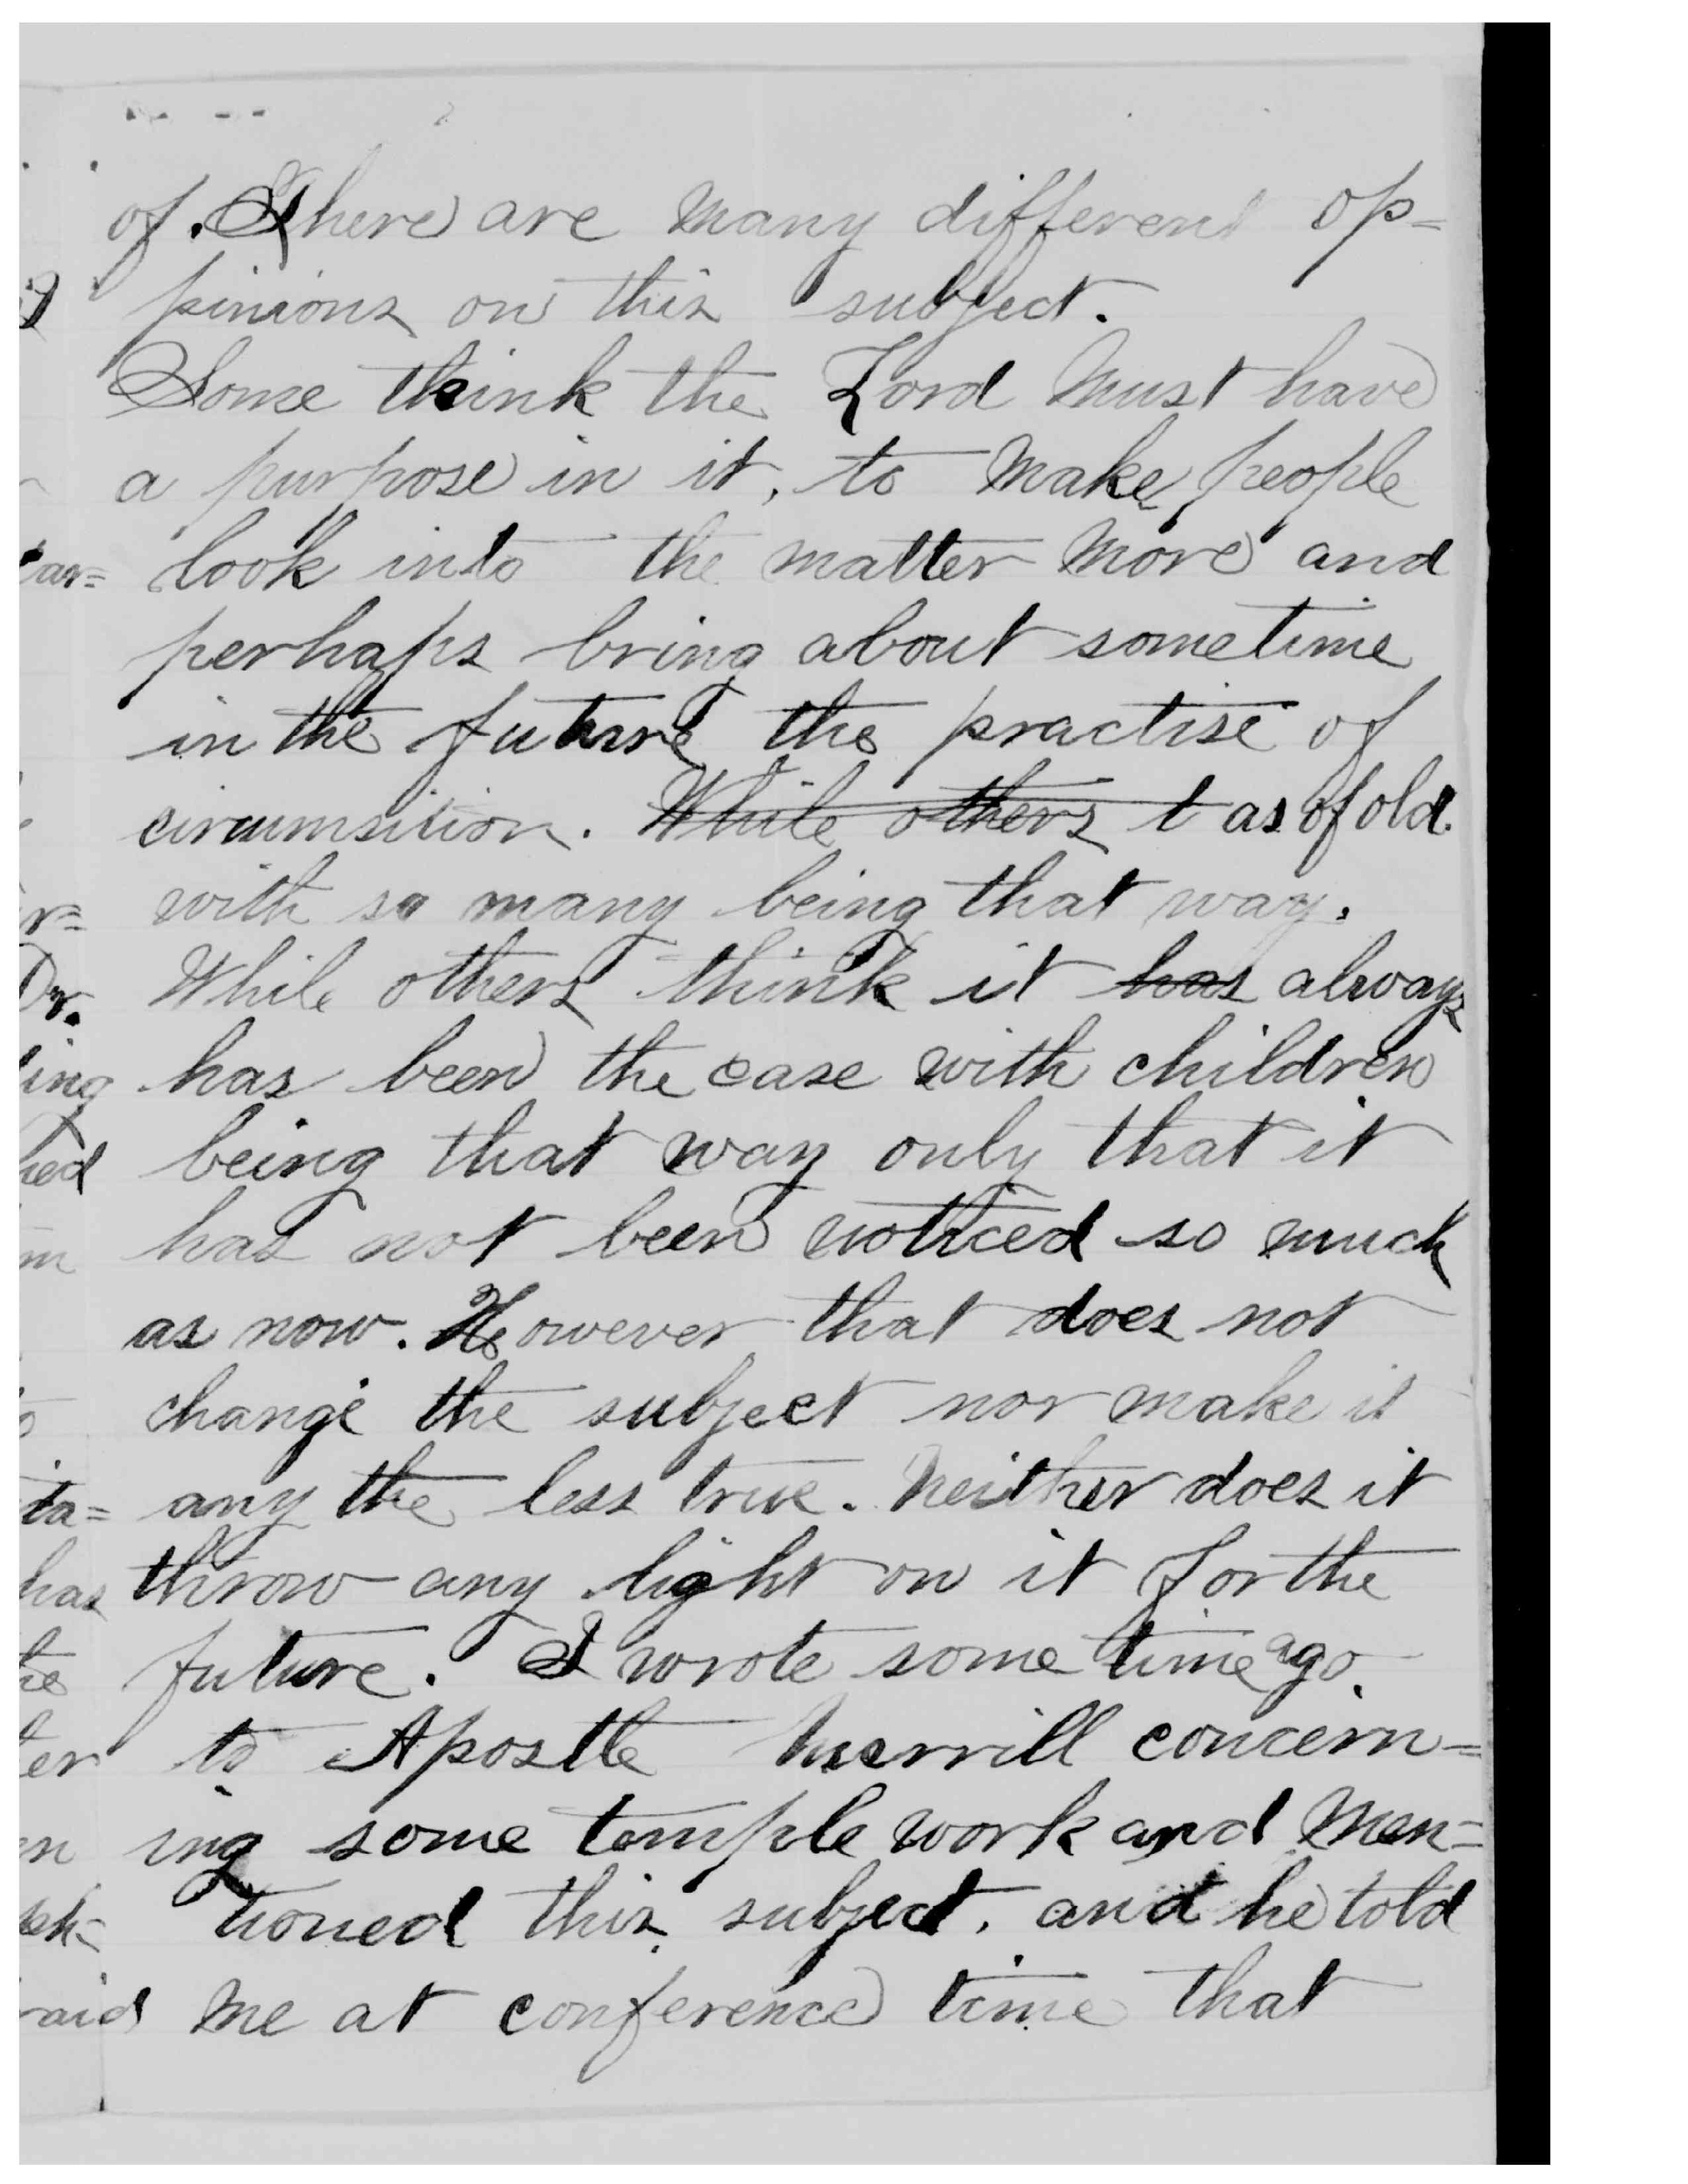 of. There are many different op=
pinions on this subject.
Some think the Lord must have
a purpose in it, to make people
look into the matter more and
perhaps bring about sometime
in the future the practise of
circumsition. While others t as of old.
with so many being that way.
While others think it has always
has been the case with children
being that way only that it
has not been noticed so much
as now. However that does not
change the subject nor make it
any the less true. Neither does it
throw any light on it for the
future. I wrote some time ago
to Apostle Merrill concern=
ing some temple work and men=
tioned this subject, and he told
me at conference time that